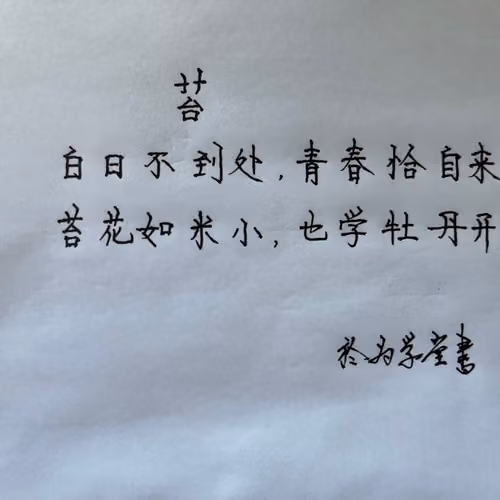 苔
白日不到处,青春恰自来
苔花如米小,也学牡丹开
为学堂書